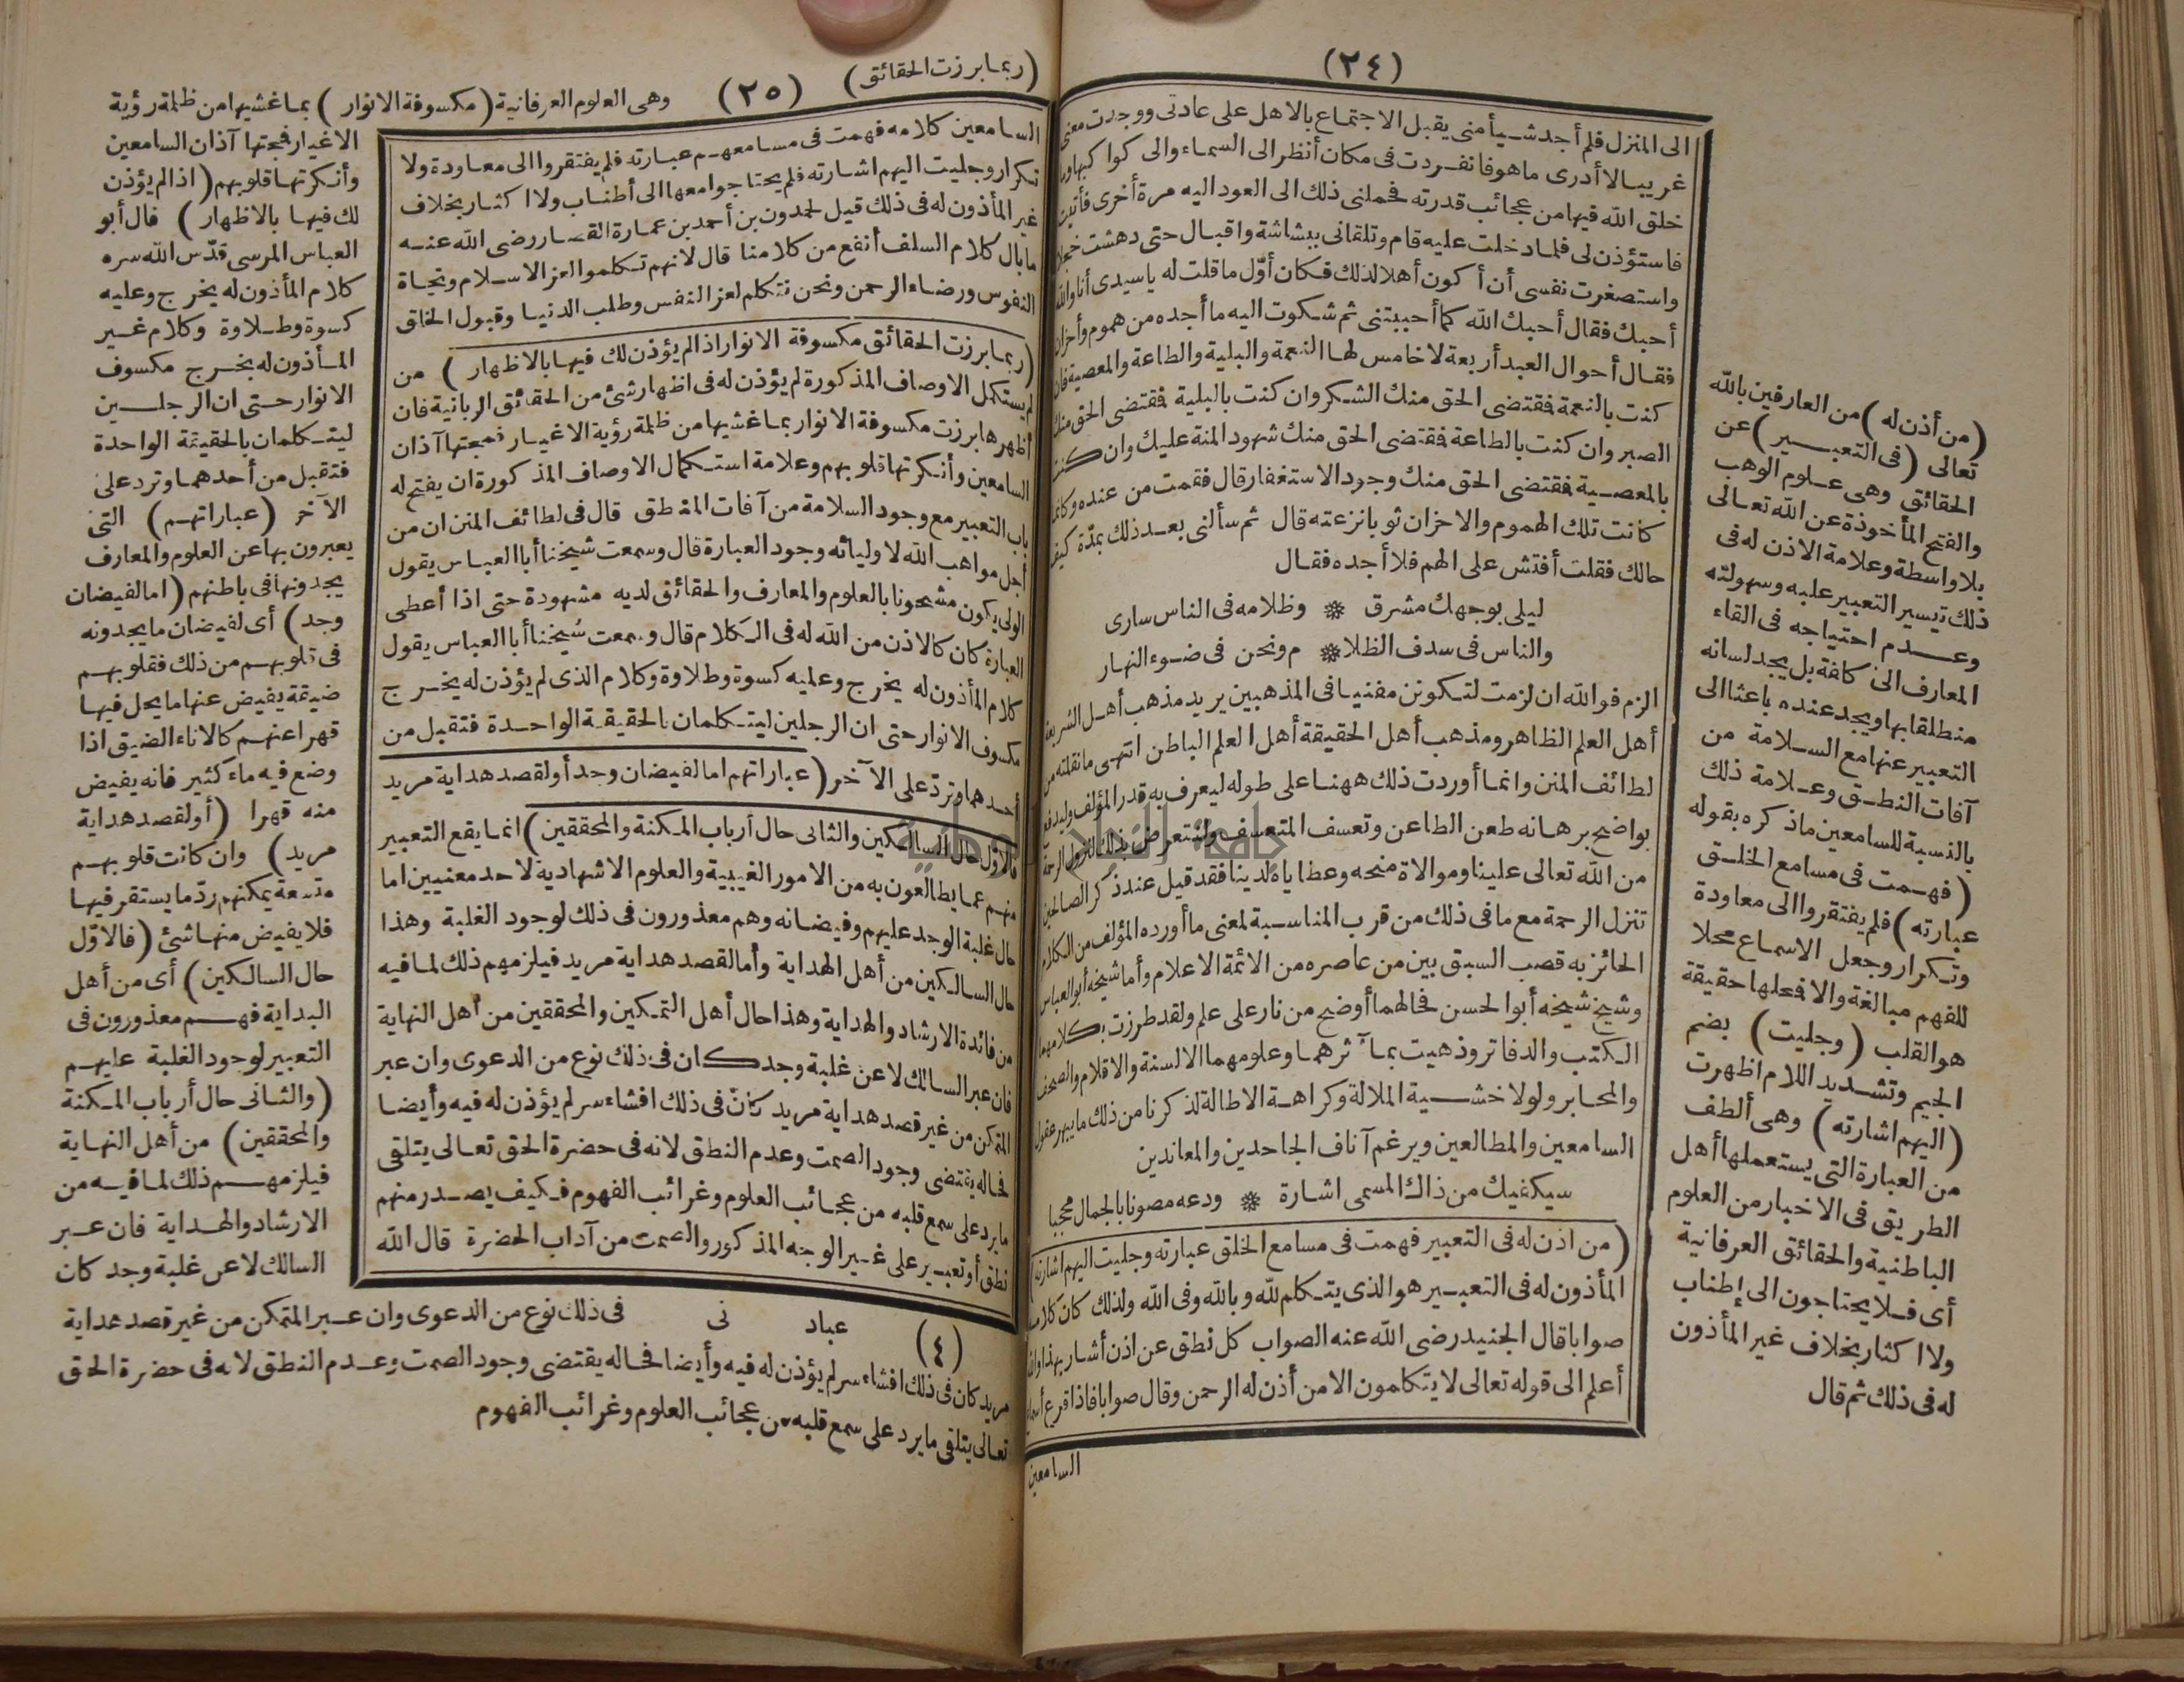 (٢٤)
الى المنزل فلم أجد شيأ منى يقبل الاجتماع بالاهل على عادتى ووجدت معنى
غريبا لا أدرى ما هو فانفردت فى مكان أنظر الى السماء والى كواكبها وما
خلق الله فيها من عجائب قدرته فحملنى ذلك الى العود اليه مرة أخرى فأتيت
فاستؤذن لى فلما دخلت عليه قام وتلقانى ببشاشة واقبال حتى دهشت خجلا
واستصغرت نفسى أن أكون أهلا لذلك فكان أوّل ما قلت له ياسيدى أنا والله
أحبك فقال أحبك الله كما أحببتنى ثم شكوت اليه ما أجده من هموم وأحزان
فقال أحوال العبد أربعة لا خامس لها النعمة والبلية والطاعة والمعصية فان
كنت بالنعمة فقتضى الحق منك الشكر وان كنت بالبلية فقتضى الحق منك
الصبر وان كنت بالطاعة فقتضى الحق منك شهود المنة عليك وان كنت
بالمعصية فقتضى الحق منك وجود الاستغفار قال فقمت من عنده وكانما
كانت تلك الهموم والاحزان ثوبا نزعته قال ثم سألنى بعد ذلك بمدّة كيف
حالك فقلت أفتش على الهم فلا أجده فقال
ليلى بوجهك مشرق * وظلامه فى الناس سارى
والناس فى سدف الظلا * م ونحن فى ضوء النهار
الزم فوالله ان لزمت لتكونن مفتيا فى المذهبين يريد مذهب أهل الشريعة
أهل العلم الظاهر ومذهب أهل الحقيقة أهل العلم الباطن انتهى ما نقلته من
لطائف المنن وانما أوردت ذلك ههنا على طوله ليعرف به قدر المؤلف وليدفع
بواضح برهانه طعن الطاعن وتعسف المتعسف ولنتعرض بذلك لنزول الرحمة
من الله تعالى علينا وموالاة منحه وعطاياه لدينا فقد قيل عند ذكر الصالحين
تنزل الرحمة مع ما فى ذلك من قرب المناسبة لمعنى ما أورده المؤلف من الكلام
الحائز به قصب السبق بين من عاصره من الائمة الاعلام وأما شيخه أبو العباس
وشيخ شيخه أبو الحسن فحالهما أوضح من نار على علم ولقد طرزت بكلامهما
الكتب والدفاتر وذهبت بمآثرهما وعلومهما الالسنة والاقلام والصحف
والمحابر ولولا خشية الملالة وكراهة الاطالة لذكرنا من ذلك ما يبهر عقول
السامعين والمطالعين ويرغم آناف الجاحدين والمعاندين
سيكفيك من ذاك المسمى اشارة * ودعه مصونا بالجمال محجبا
(من اذن له فى التعبير فهمت فى مسامع الخلق عبارته وجليت اليهم اشارته)
المأذون له فى التعبير هو الذى يتكلم لله وبالله وفى الله ولذلك كان كلامه
صوابا قال الجنيد رضى الله عنه الصواب كل نطق عن اذن أشار بهذا والله
أعلم الى قوله تعالى لا يتكلمون الا من أذن له الرحمن وقال صوابا فاذا قرع أسماع
السامعين
(من أذن له) من العارفين بالله
تعالى (فى التعبير) عن
الحقائق وهى علوم الوهب
والفتح المأخوذة عن الله تعالى
بلا واسطة وعلامة الاذن له فى
ذلك تيسير التعبير عليه وسهولته
وعدم احتياجه فى القاء
المعارف الى كافة بل يجد لسانه
منطلقا بها ويجد عنده باعثا الى
التعبير عنها مع السلامة من
آفات النطق وعلامة ذلك
بالنسبة للسامعين ما ذكره بقوله
(فهمت فى مسامع الخلق
عبارته) فلم يفتقروا الى معاودة
وتكرار وجعل الاسماع محلا
للفهم مبالغة والا فمحلها حقيقة
هو القلب (وجليت) بضم
الجيم وتشديد اللام اظهرت
(اليهم اشارته) وهى ألطف
من العبارة التى يستعملها أهل
الطريق فى الاخبار من العلوم
الباطنية والحقائق العرفانية
أى فلا يحتاجون الى إطناب
ولا اكثار بخلاف غير المأذون
له فى ذلك ثم قال
(ربما برزت الحقائق)
(٢٥)
وهى العلوم العرفانية (مكسوفة الانوار) بما غشيها من ظلمة رؤية
الاغيار فمجتها آذان السامعين
وأنكرتها قلوبهم (اذا لم يؤذن
لك فيها بالاظهار) قال أبو
العباس المرسى قدّس الله سره
كلام المأذون له يخرج وعليه
كسوة وطلاوة وكلام غير
المأذون له يخرج مكسوف
الانوار حتى ان الرجلين
ليتكلمان بالحقيقة الواحدة
فتقبل من أحدهما وترد على
الآخر (عباراتهم) التى
يعبرون بها عن العلوم والمعارف
يجدونها فى باطنهم (اما لفيضان
وجد) أى لفيضان ما يجدونه
فى قلوبهم من ذلك فقلوبهم
ضيقة يفيض عنها ما يحل فيها
قهرا عنهم كالاناء الضيق اذا
وضع فيه ماء كثير فانه يفيض
منه قهرا (أو لقصد هداية
مريد) وان كانت قلوبهم
متسعة يمكنهم ردّ ما يستقر فيها
فلا يفيض منها شئ (فالاوّل
حال السالكين) أى من أهل
البداية فهم معذورون فى
التعبير لوجود الغلبة عليهم
(والثانى حال أرباب المكنة
والمحققين) من أهل النهاية
فيلزمهم ذلك لما فيه من
الارشاد والهداية فان عبر
السالك لا عن غلبة وجد كان
فى ذلك نوع من الدعوى وان عبر المتمكن من غير قصد هداية
مريد كان فى ذلك افشاء سر لم يؤذن له فيه وأيضا فحاله يقتضى وجود الصمت وعدم النطق لانه فى حضرة الحق
تعالى يتلقى ما يرد على سمع قلبه من عجائب العلوم وغرائب الفهوم
السامعين كلامه فهمت فى مسامعهم عبارته فلم يفتقروا الى معاودة ولا
تكرار وجليت اليهم اشارته فلم يحتاجوا معها الى أطناب ولا اكثار بخلاف
غير المأذون له فى ذلك قيل لحمدون بن أحمد بن عمارة القصار رضى الله عنه
ما بال كلام السلف أنفع من كلامنا قال لانهم تكلموا لعز الاسلام ونجاة
النفوس ورضاء الرحمن ونحن نتكلم لعز النفس وطلب الدنيا وقبول الخلق
(ربما برزت الحقائق مكسوفة الانوار اذا لم يؤذن لك فيها بالاظهار) من
لم يستكمل الاوصاف المذكورة لم يؤذن له فى اظهار شئ من الحقائق الربانية فان
أظهرها برزت مكسوفة الانوار بما غشيها من ظلمة رؤية الاغيار فمجتها آذان
السامعين وأنكرتها قلوبهم وعلامة استكمال الاوصاف المذكورة ان يفتح له
باب التعبير مع وجود السلامة من آفات المنطق قال فى لطائف المنن ان من
أجل مواهب الله لاوليائه وجود العبارة قال وسمعت شيخنا أبا العباس يقول
الولى يكون مشحونا بالعلوم والمعارف والحقائق لديه مشهودة حتى اذا أعطى
العبارة كان كالاذن من الله له فى الكلام قال وسمعت شيخنا أبا العباس يقول
كلام المأذون له يخرج وعليه كسوة وطلاوة وكلام الذى لم يؤذن له يخرج
مكسوف الانوار حتى ان الرجلين ليتكلمان بالحقيقة الواحدة فتقبل من
أحدهما وتردّ على الآخر (عباراتهم اما لفيضان وجد أو لقصد هداية مريد
فالاوّل حال السالكين والثانى حال أرباب المكنة والمحققين) انما يقع التعبير
منهم عما يطالعون به من الامور الغيبية والعلوم الاشهادية لاحد معنيين اما
حال غلبة الوجد عليهم وفيضانه وهم معذورون فى ذلك لوجود الغلبة وهذا
حال السالكين من أهل الهداية وأما لقصد هداية مريد فيلزمهم ذلك لما فيه
من فائدة الارشاد والهداية وهذا حال أهل التمكين والمحققين من أهل النهاية
فان عبر السالك لا عن غلبة وجد كان فى ذلك نوع من الدعوى وان عبر
المتمكن من غير قصد هداية مريد كان فى ذلك افشاء سر لم يؤذن له فيه وأيضا
فحاله يقتضى وجود الصمت وعدم النطق لانه فى حضرة الحق تعالى يتلقى
ما يرد على سمع قلبه من عجائب العلوم وغرائب الفهوم فكيف يصدر منهم
نطق أو تعبير على غير الوجه المذكور والصمت من آداب الحضرة قال الله
(٤) عباد نى